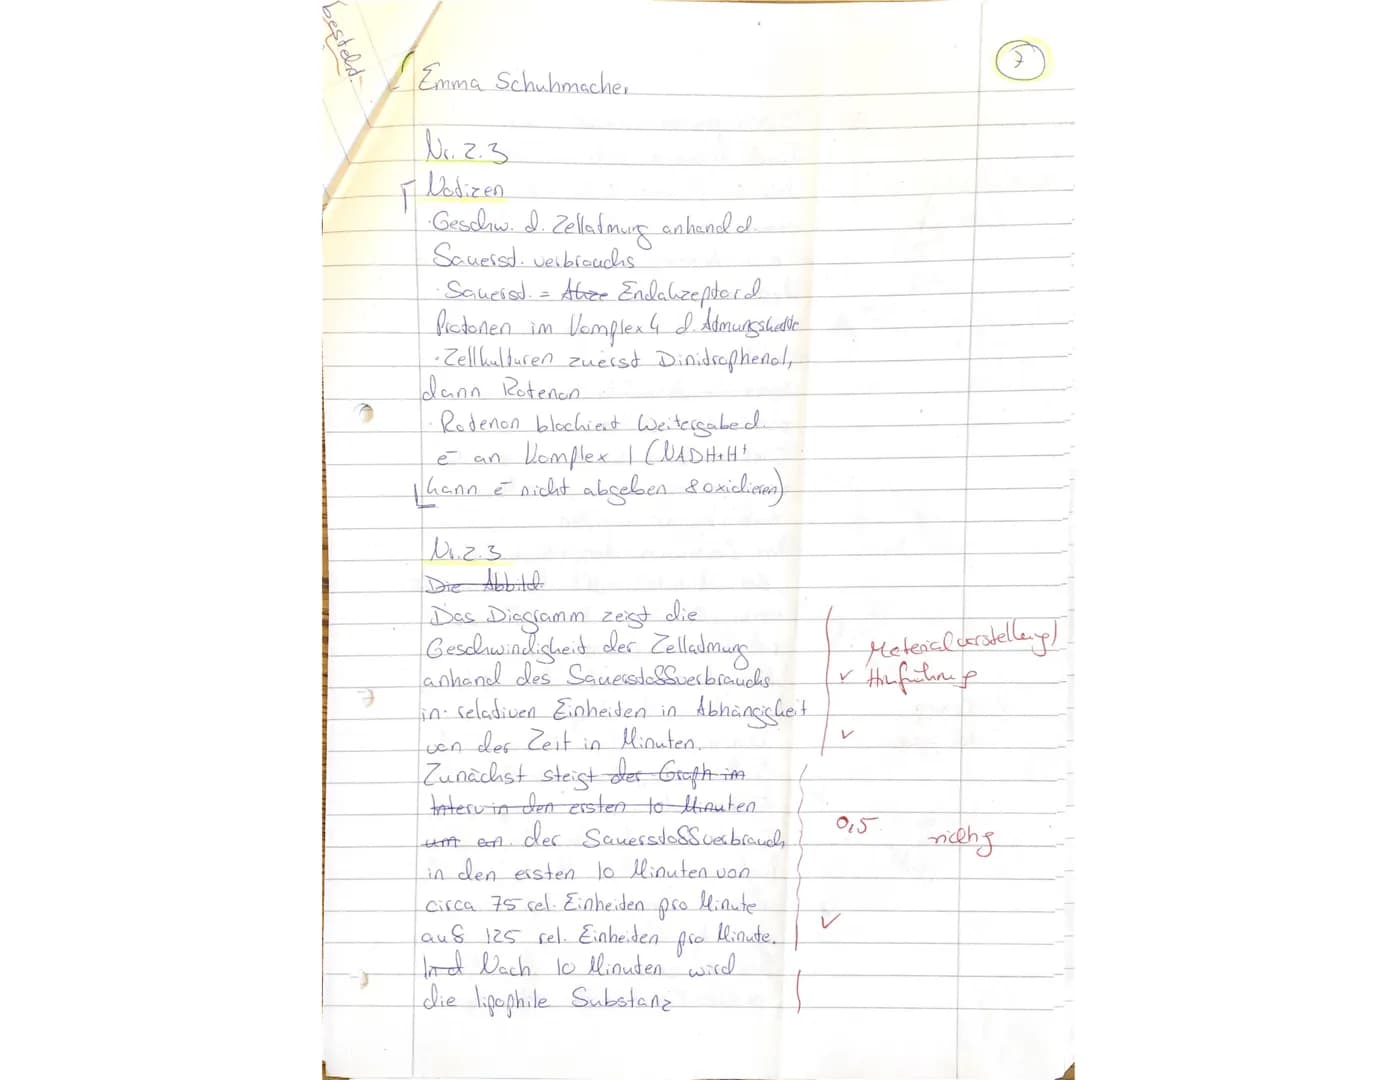 besteht.
7
Emma Schuhmacher
Nr. 2.3
Notizen
·Geschw. d. Zellatmung anhand d.
Sauerst. verbrauchs
·Sauerst. = Akze Endakzeptor d.
Protonen im Komplex 4 d. Atmungskette
·Zellkulturen zuerst Dinitrophenol,
dann Rotenon
·Rotenon blockiert Weitergabe d.
e⁻ an Komplex 1 (NADH+H⁺
kann e⁻ nicht abgeben & oxidieren)
Nr. 2.3
Die Abbild.
Das Diagramm zeigt die
Geschwindigkeit der Zellatmung
anhand des Sauerstoffverbrauchs
in relativen Einheiten in Abhängigkeit
von der Zeit in Minuten.
Materialvorstellung/
✓ Hinführung
✓
Zunächst steigt der Graph im
Interv in den ersten 10 Minuten
um an. der Sauerstoffverbrauch
in den ersten 10 Minuten von
circa 75 rel. Einheiten pro Minute
auf 125 rel. Einheiten pro Minute.
0,5 richtig
✓
Nach 10 Minuten wird
die lipophile Substanz